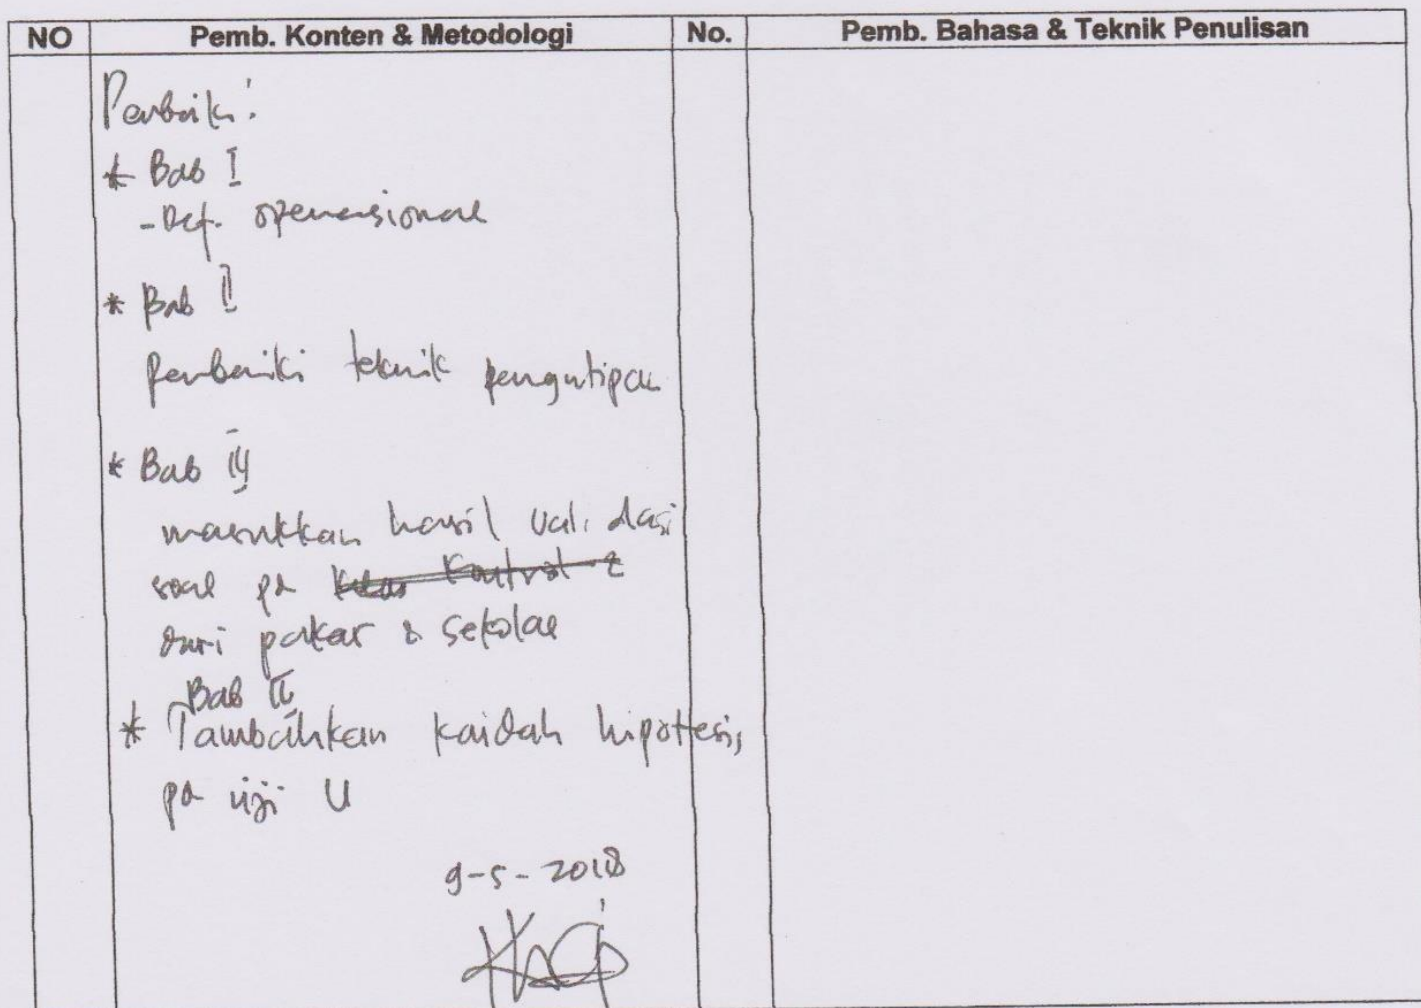 NO Pemb. Konten & Metodologi No. Pemb. Bahasa & Teknik Penulisan
Perbaiki:
* Bab I
- Def. operasional
* Bab II
perbaiki teknik pengutipan
* Bab III
masukkan hasil validasi
soal pa kelas kontrol &
dari pakar & sekolah
Bab III
* Tambahkan kaidah hipotesis,
pa uji U
9-5-2018